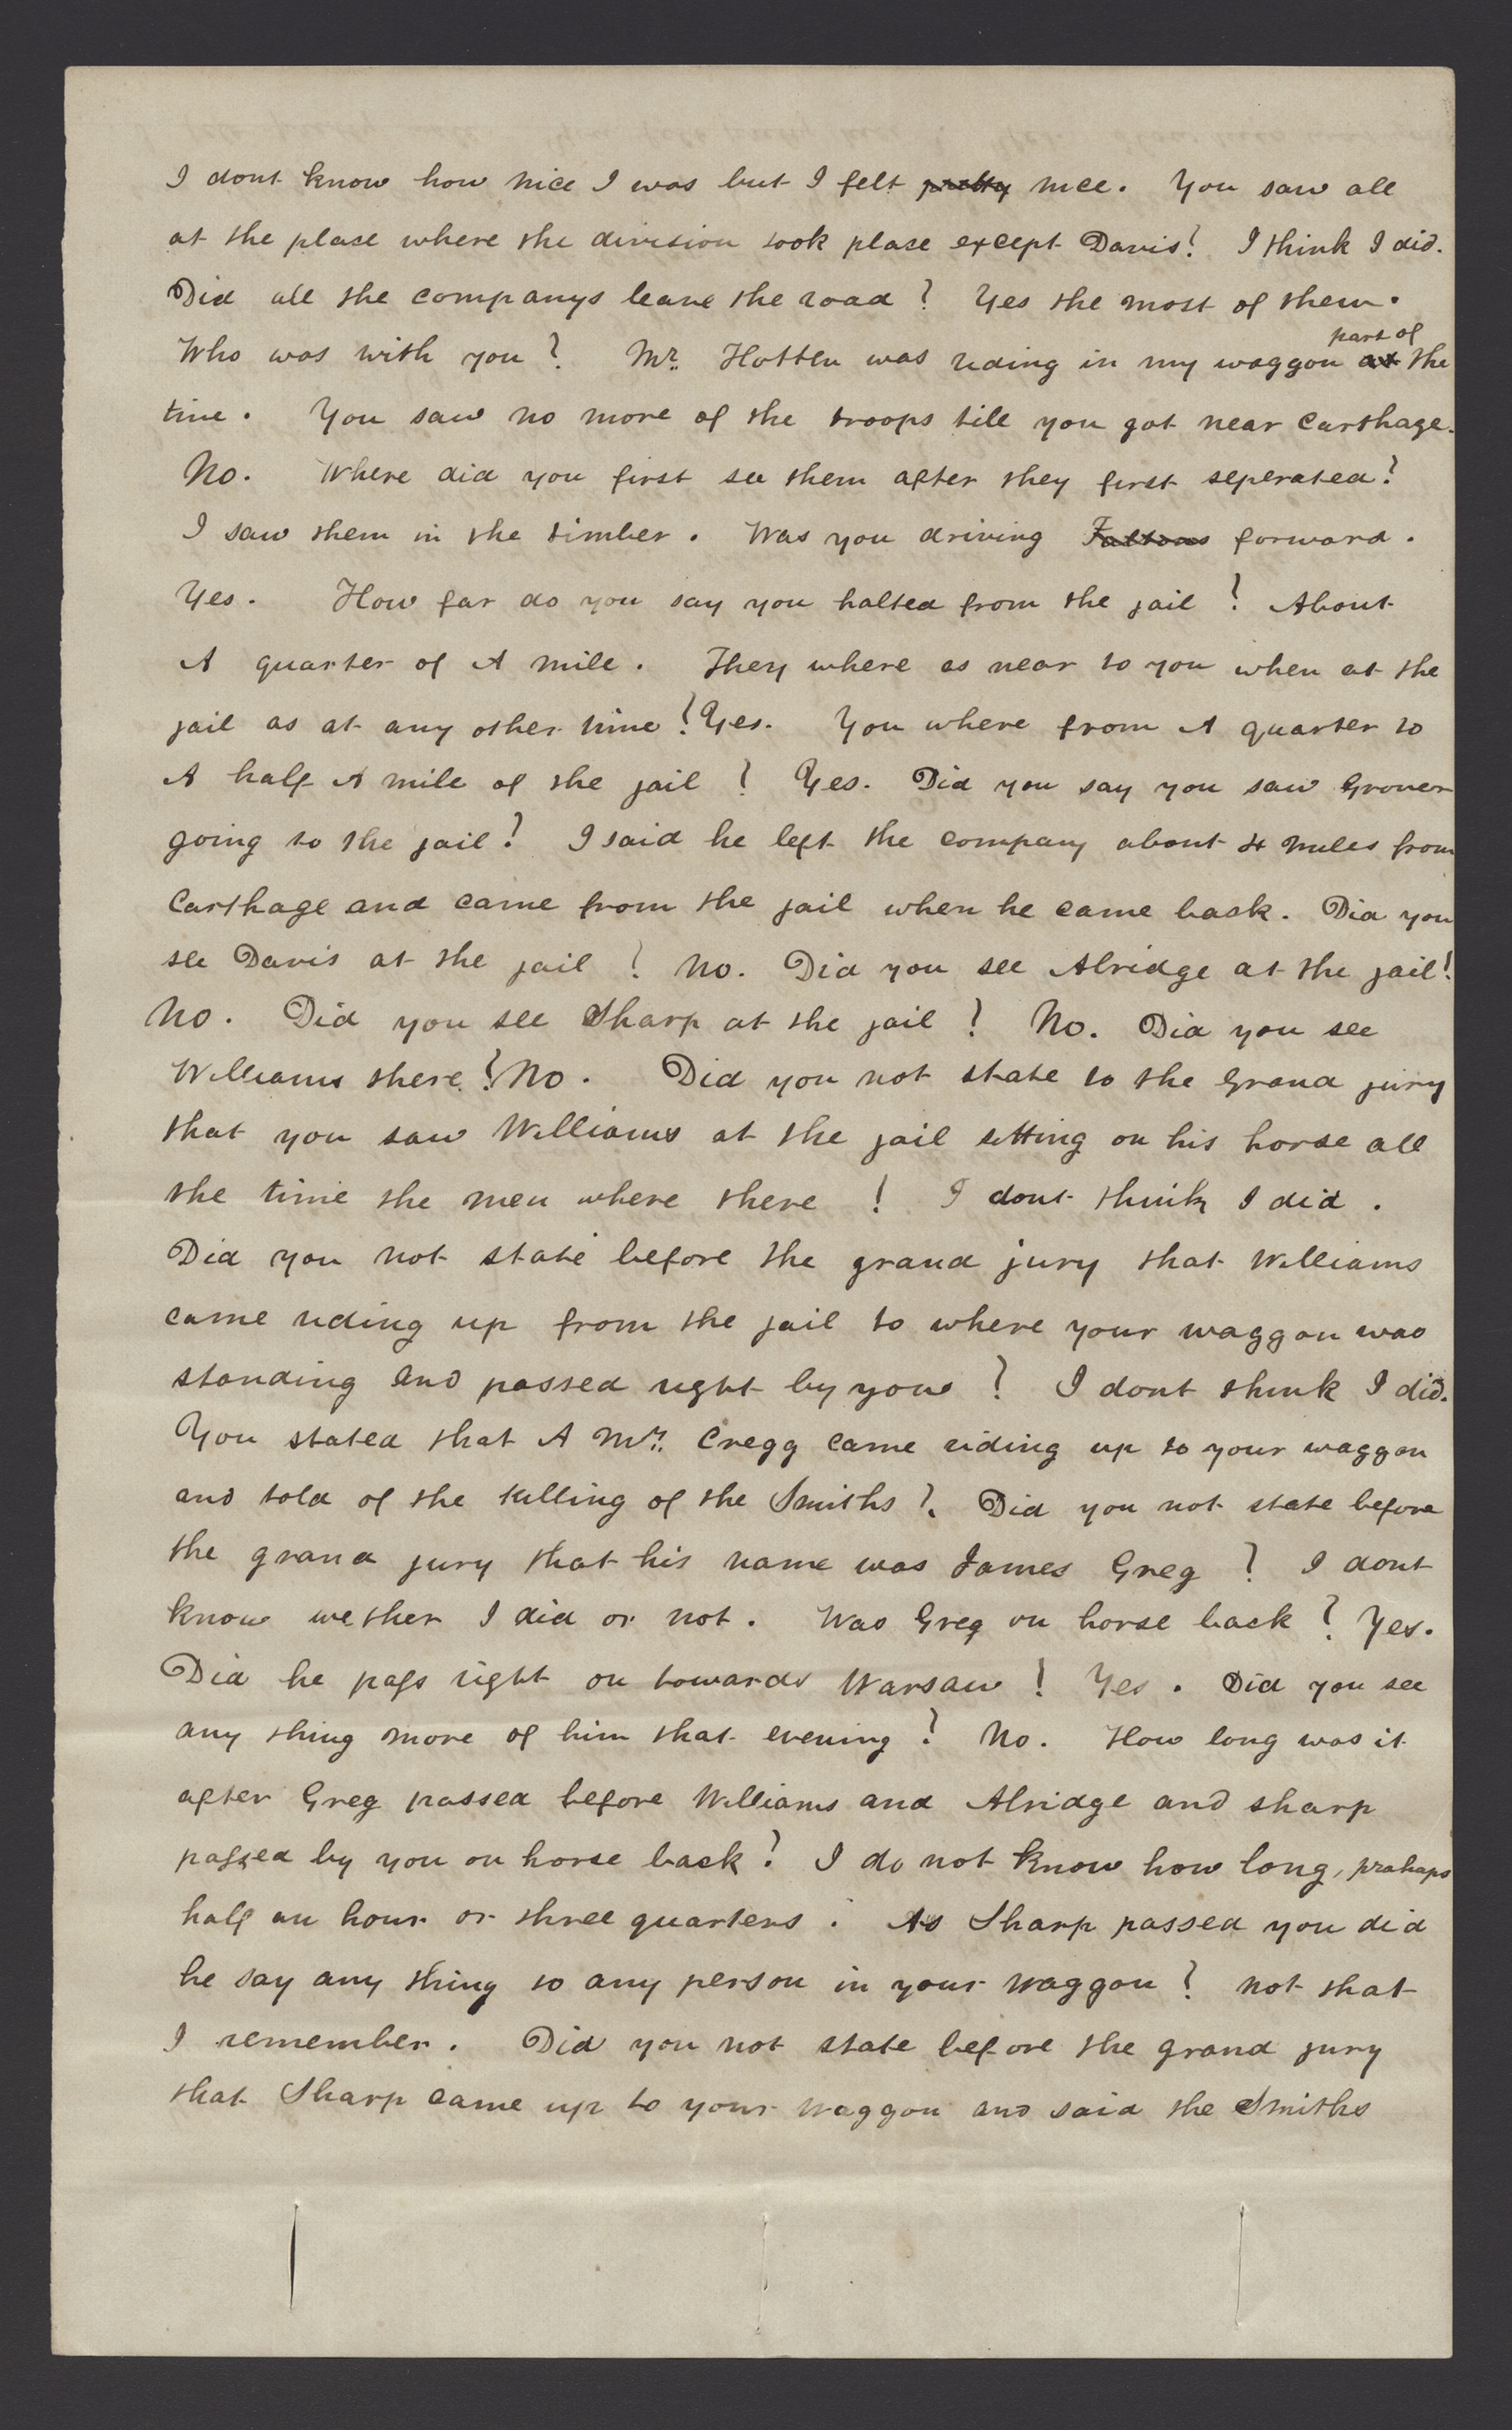 I dont know how nice I was but I felt pretty nice. You saw all
at the place where the division took place except Davis? I think I did.
Did all the companys leave the road? Yes the most of them.
part of
Who was with you? Mr. Hotten was riding in my waggon at the
time. You saw no more of the troops till you got near Carthage.
No. Where did you first see them after they first seperated?
I saw them in the timber. Was you driving forward.
Yes. How far do you say you halted from the jail? About
A quarter of A mile. They where as near to you when at the
jail as at any other time? Yes. You where from A quarter to
A half A mile of the jail? Yes. Did you say you saw Grover
going to the jail? I said he left the company about 4 miles from
Carthage and came from the jail when he came back. Did you
see Davis at the jail? No. Did you see Alridge at the jail?
No. Did you see Sharp at the jail? No. Did you see
Williams there? No. Did you not state to the Grand jury
that you saw Williams at the jail setting on his horse all
the time the men where there? I dont think I did.
Did you not state before the grand jury that Williams
came riding up from the jail to where your waggon was
standing and passed right by you? I dont think I did.
You stated that A Mr. Cregg came riding up to your waggon
and told of the killing of the Smiths? Did you not state before
the grand jury that his name was James Greg? I dont
know wether I did or not. Was Greg on horse back? Yes.
Did he pass right on towards Warsaw? Yes. Did you see
any thing more of him that evening? No. How long was it
after Greg passed before Williams and Alridge and sharp
passed by you on horse back? I do not know how long, prahaps
half an hour or three quarters. As Sharp passed you did
he say any thing to any person in your waggon? not that
I remember. Did you not state before the grand jury
that Sharp came up to your waggon and said the Smiths